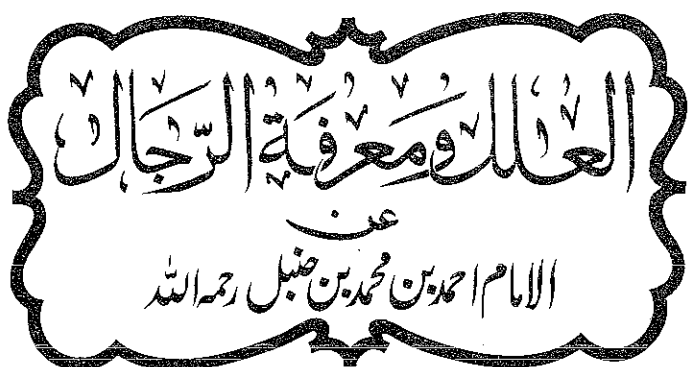 العلل ومعرفة الرجال
عن
الامام احمد بن محمد بن حنبل رحمہ اللہ